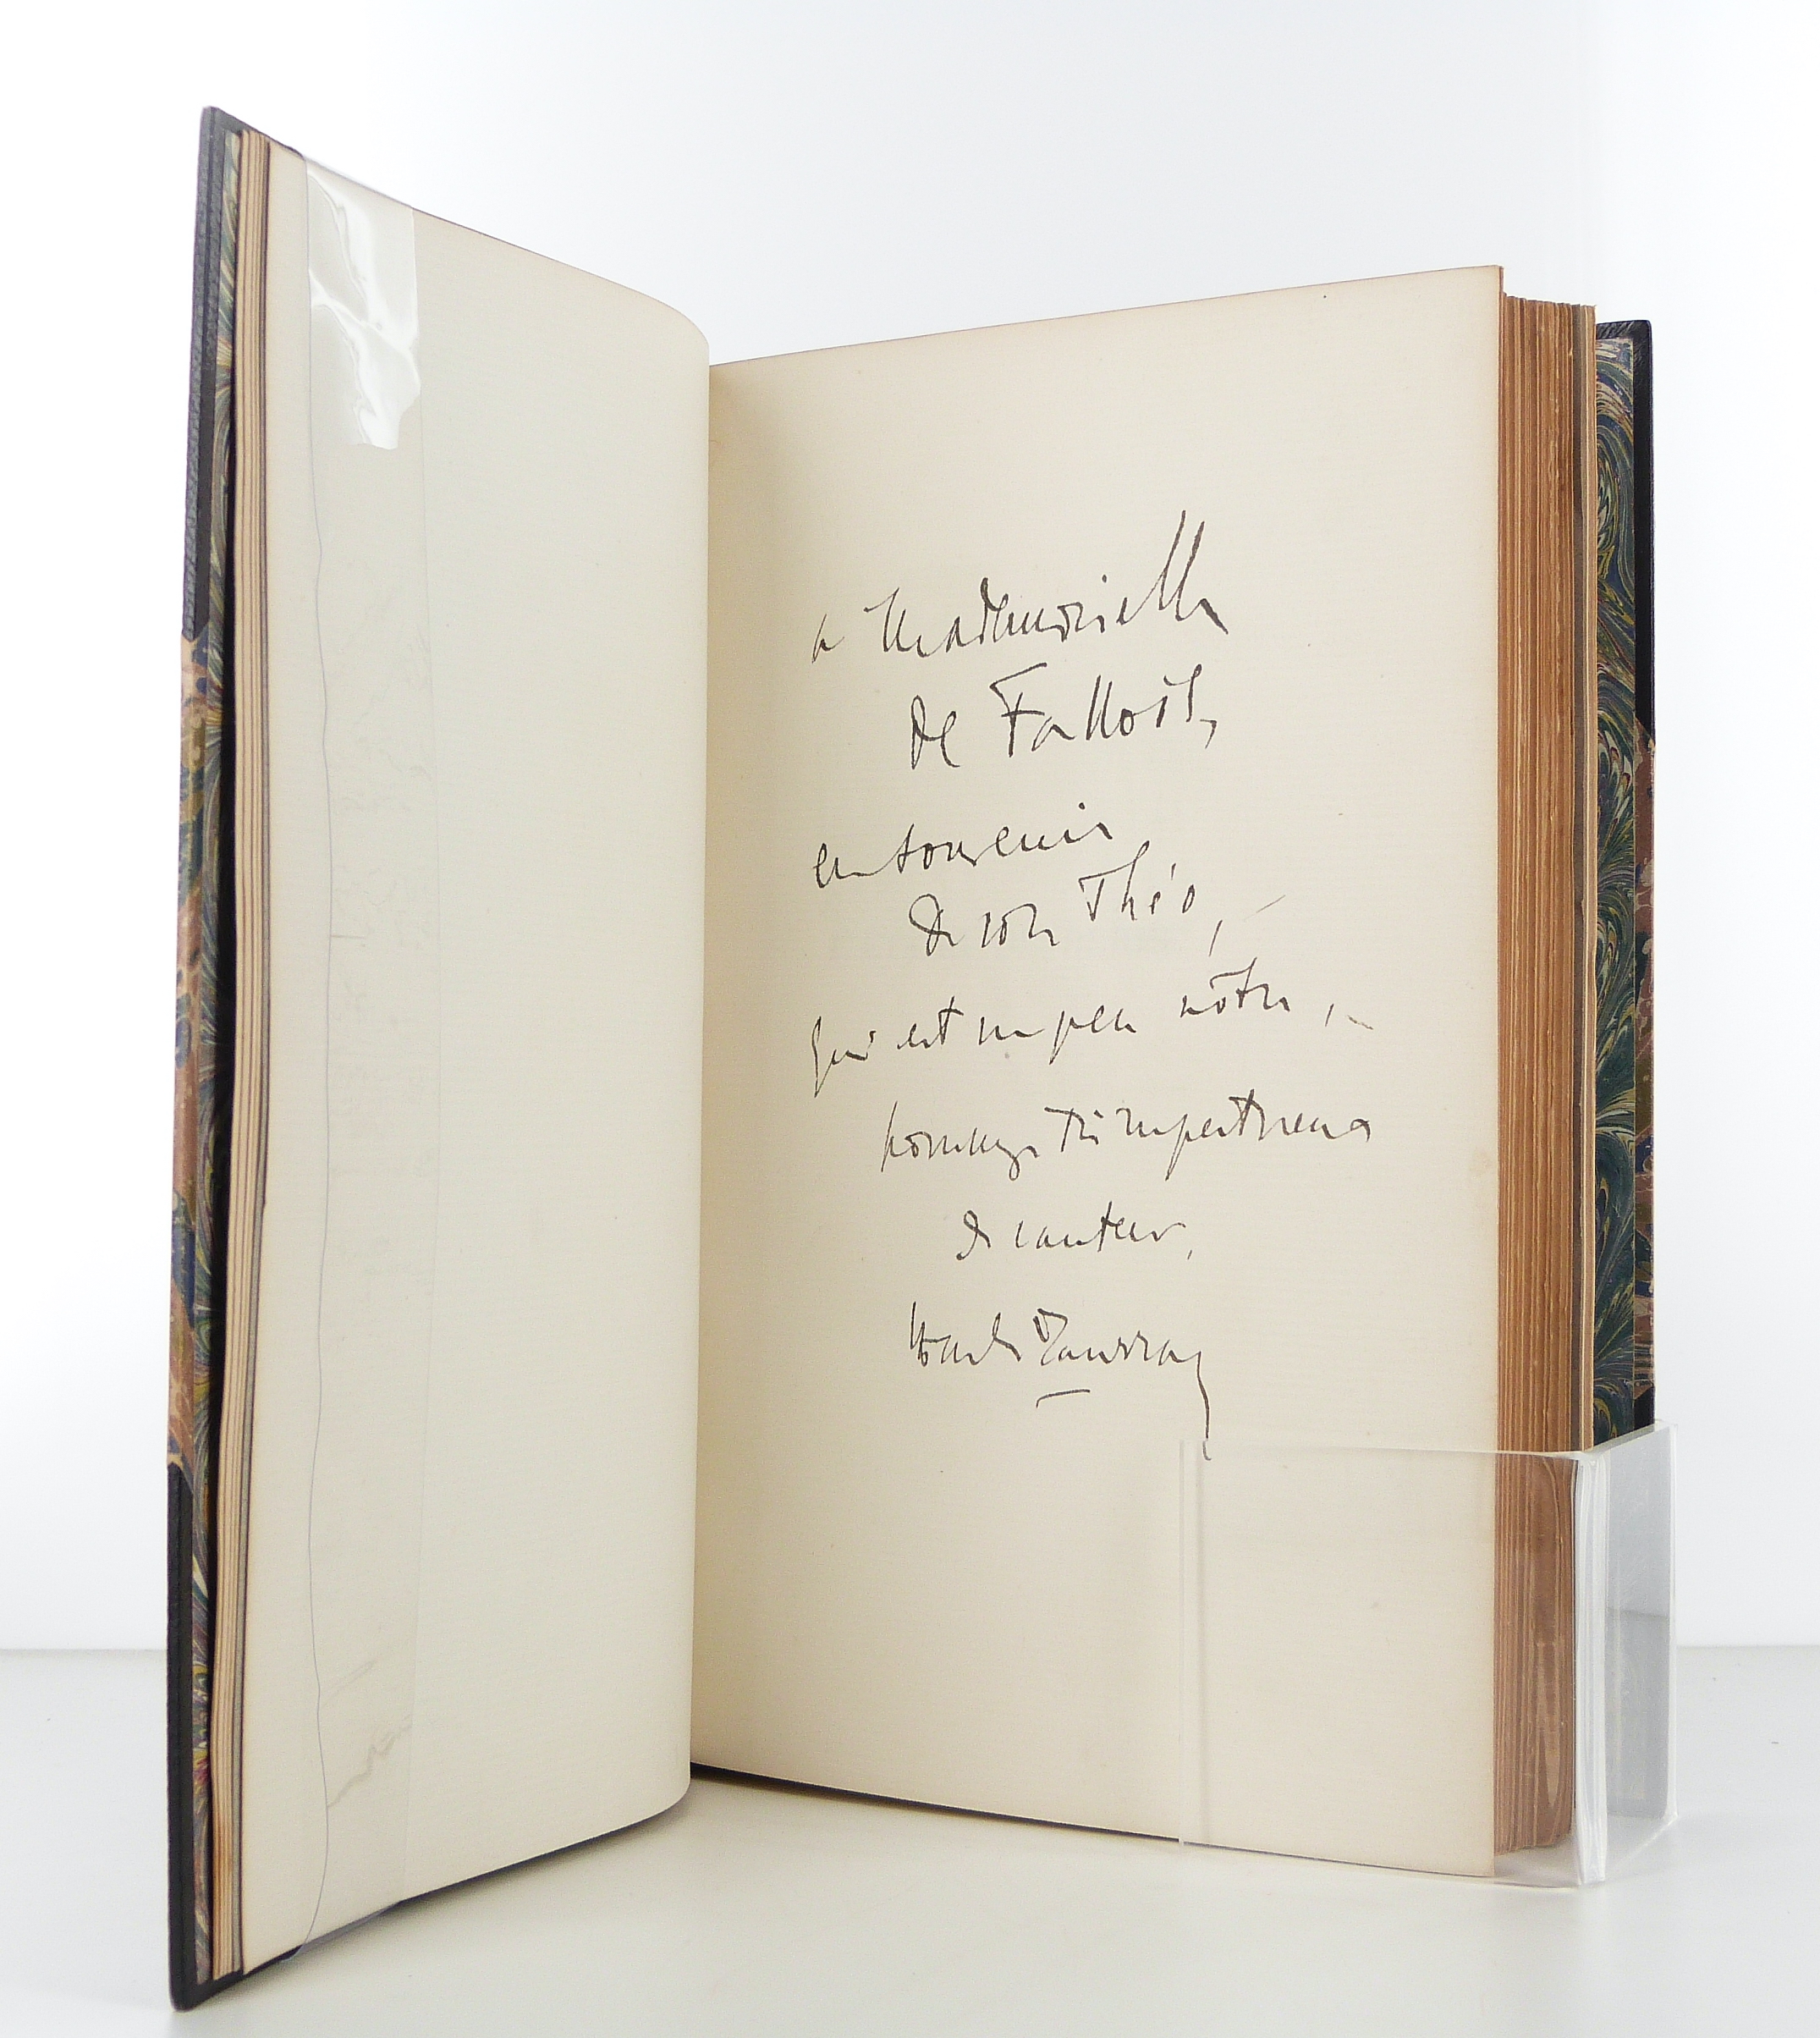 a Mademoiselle
de Fallois,
en souvenir
de son Théo, —
qui est un peu nôtre, —
hommage très impertinent
de l'auteur,
Charles Maurras